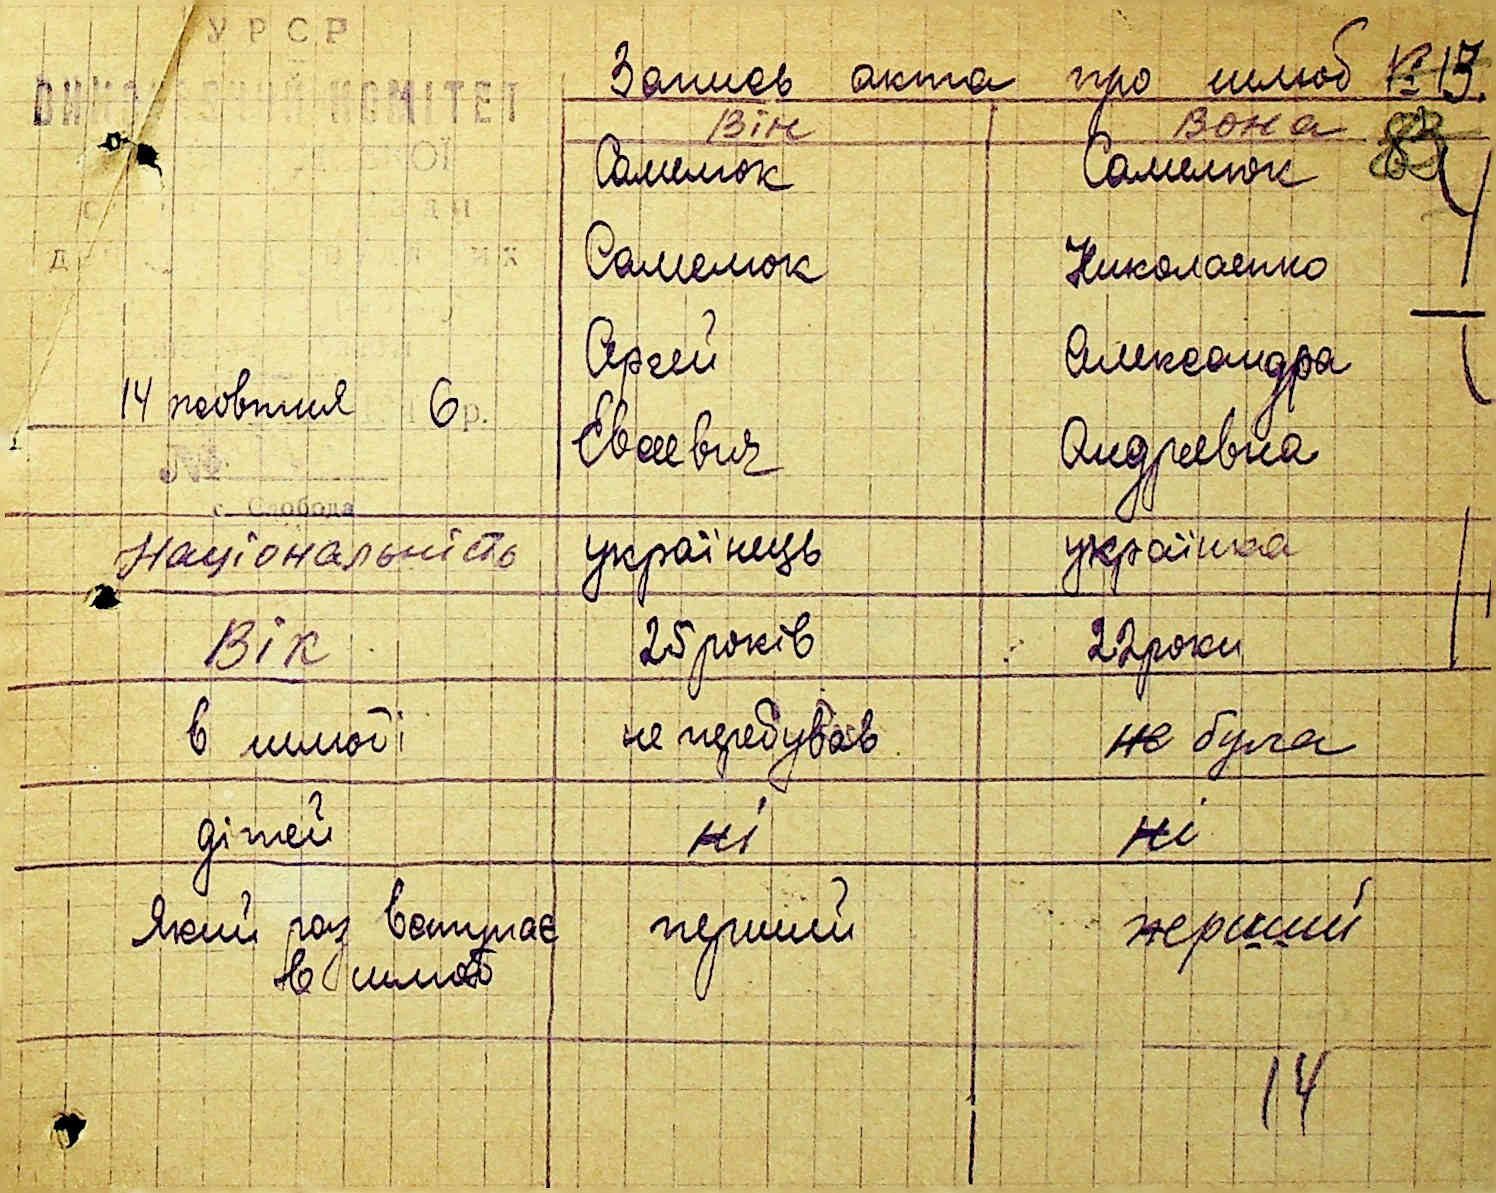 УРСР
ВИКОНАВЧИЙ КОМІТЕТ
Запись акта про шлюб № 13.
Він Вона
Самелюк Самелюк
Самелюк Николаенко
Сергей Александра
14 жовтня 6 р.
Евсеевич Андреевна
№
с. Слобода
Національність українець українка
Вік 25 років 22 роки
в шлюбі не перебував не була
дітей ні ні
Який раз вступає перший перший
в шлюб
14